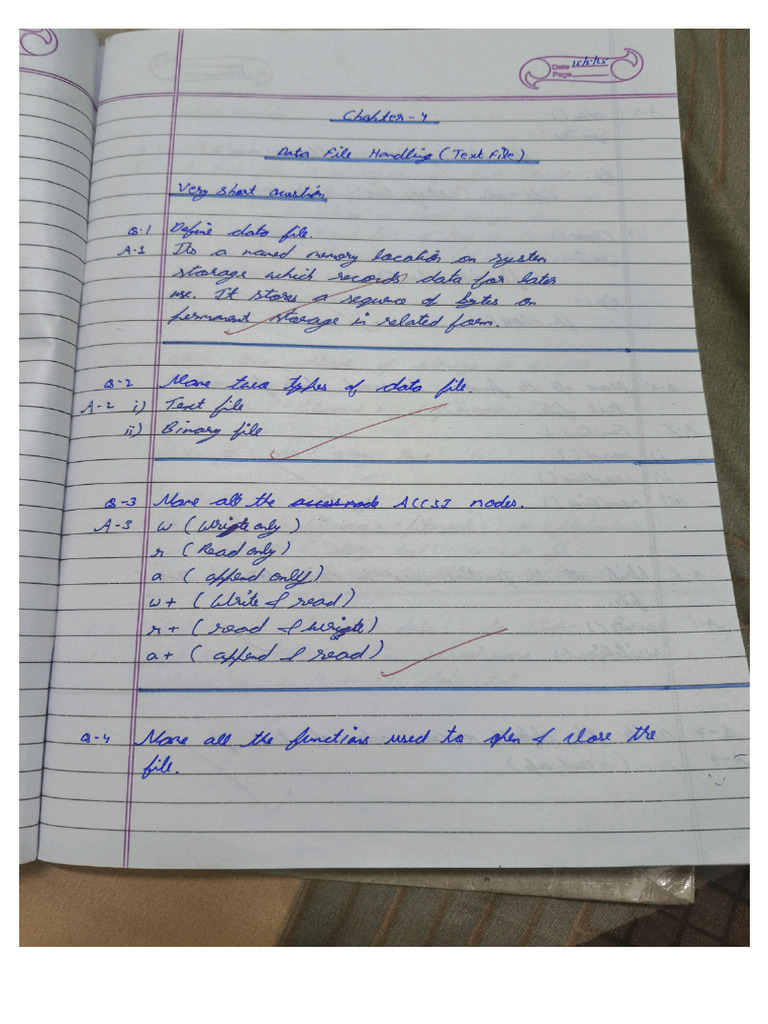 Date 15/5/25
Page
Chapter-4
Data File Handling (Text File)
Very short Question
Q.1 Define data file.
A-1 Its a named memory location on system
storage which records data for later
use. It stores a sequence of bytes on
permanent storage is related form.
Q-2 Name two types of data file.
A-2 i) Text file
ii) Binary file
Q-3 Name all the ACCSI modes.
A-3 w (Write only)
r (Read only)
a (append only)
w+ (Write & read)
r+ (read & write)
a+ (append & read)
Q-4 Name all the functions used to open & close the
file.